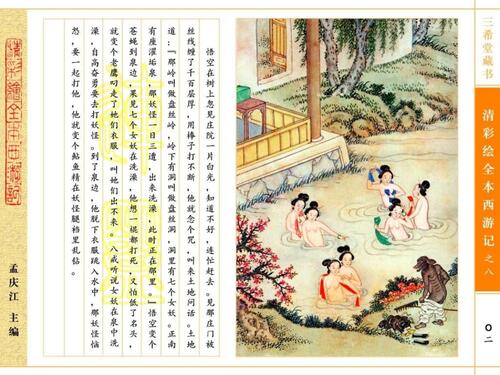 悟空在树上忽见庄院一片白光，知道不好，连忙赶去。见那庄门被
丝绳缠了千百层厚，用棒子打不断，他就念个咒，叫来土地问话。土地
道：“那岭叫做盘丝岭，岭下有洞叫做盘丝洞，洞里有七个女妖。正南
有座濯垢泉，那妖怪一日三遭，出来洗澡，此时正在那里。”悟空变个
苍蝇到泉边，果见七个女妖在洗澡，他想一棍都打死，又怕低了名头，
就变个老鹰叼走了她们衣服，叫她们出不来。八戒听说女妖在泉中洗
澡，自高奋勇要去打妖怪。到了泉边，他脱下衣服跳入水中，那妖怪恼
怒，要一起打他，他就变个鲇鱼精在妖怪腿裆里乱钻。
三希堂藏书
清彩绘全本西游记 之八
〇二
清彩绘全本西游记
孟庆江 主编